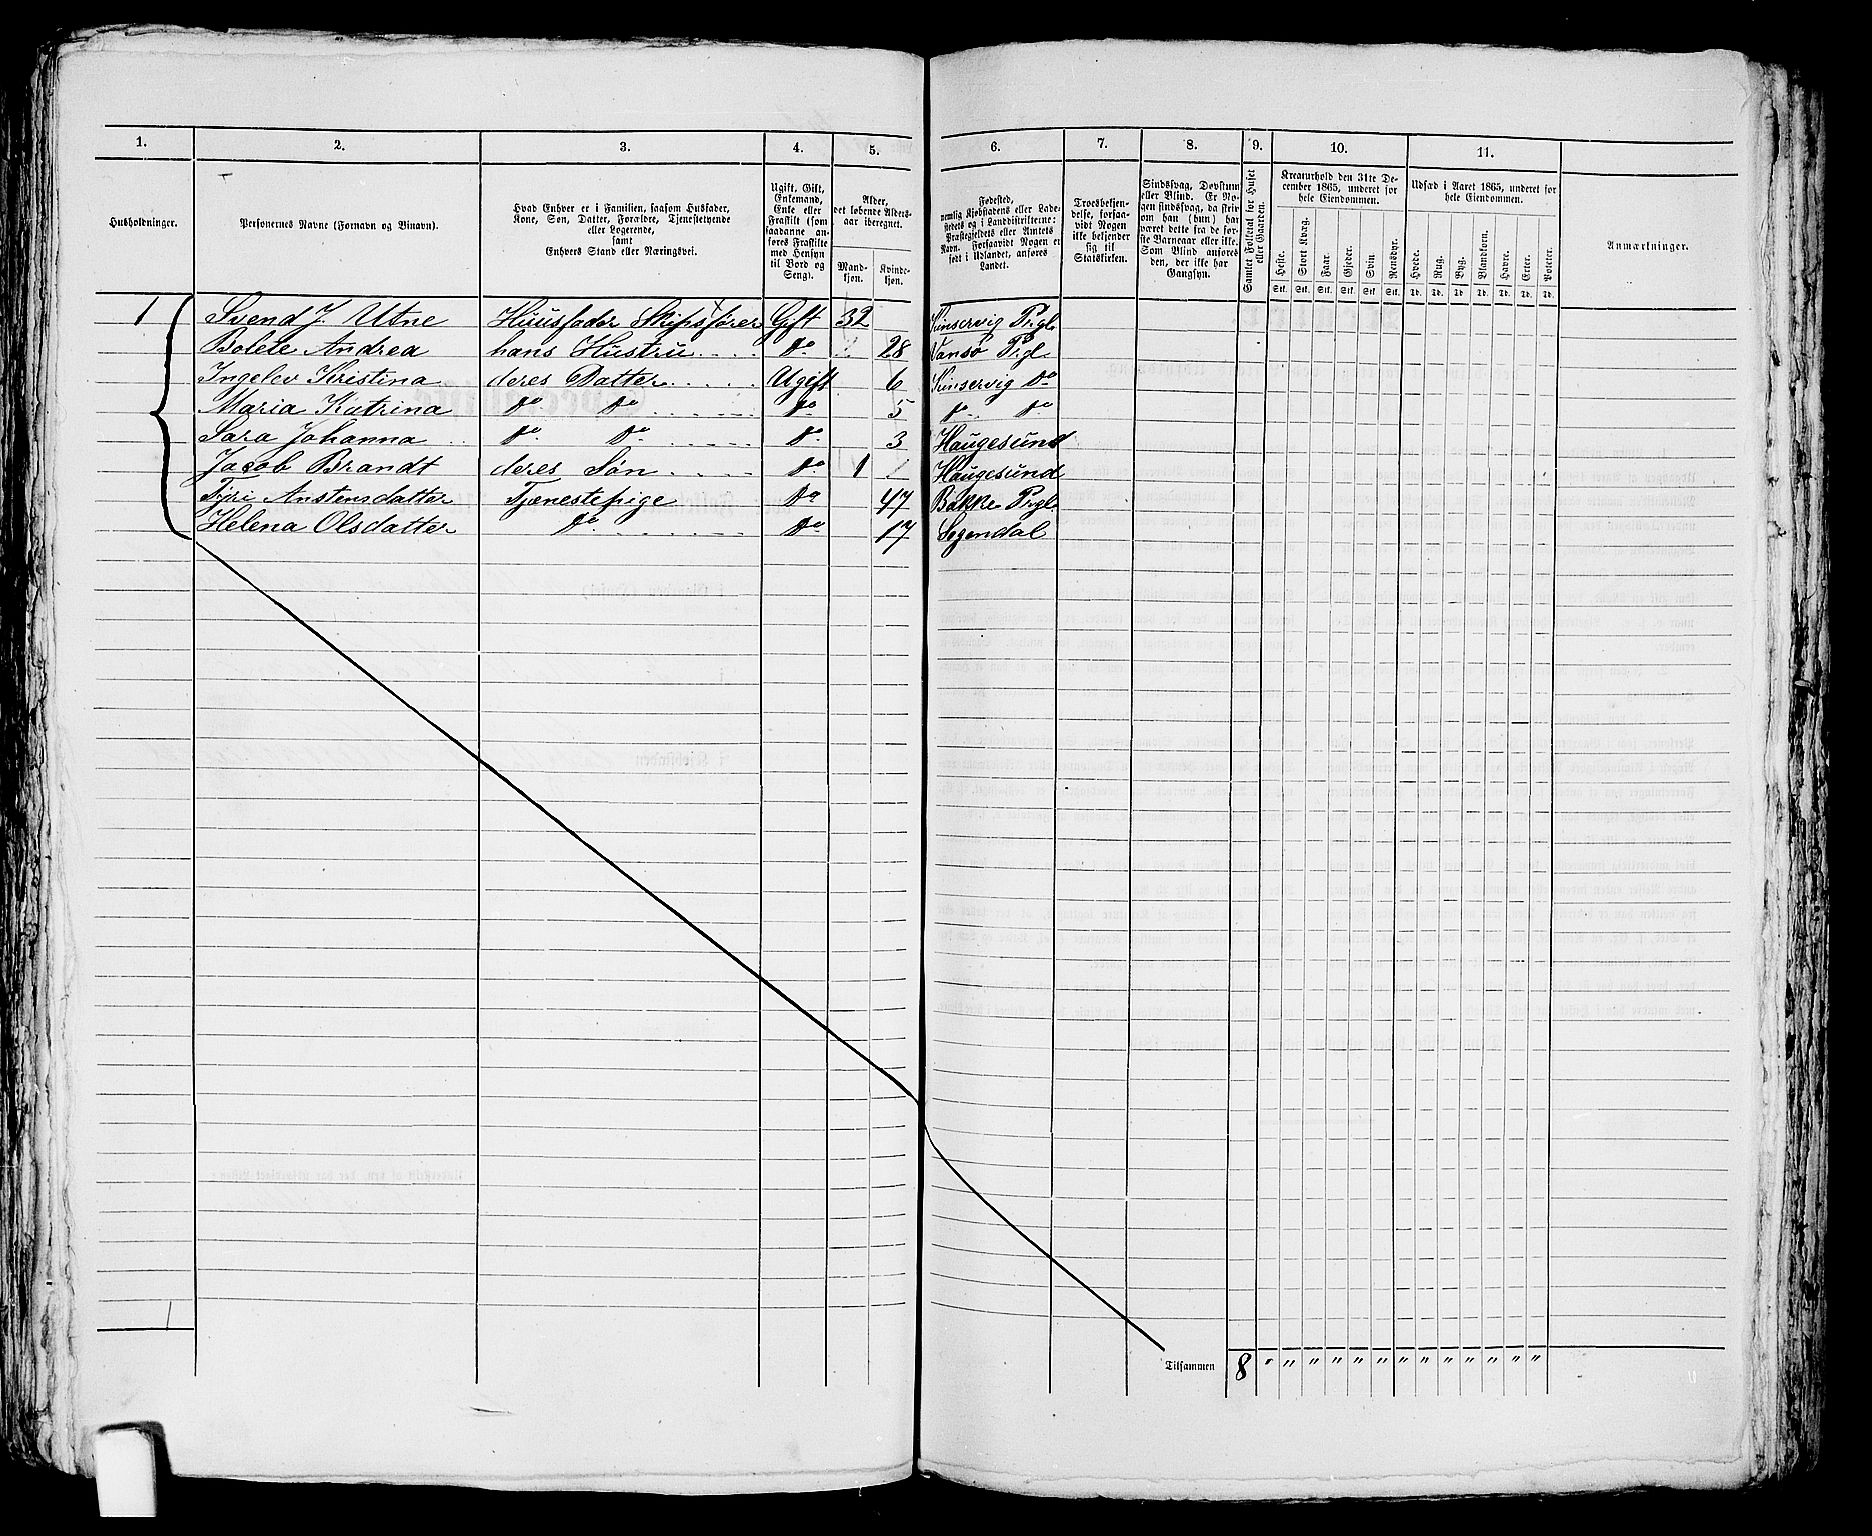 1. 2. 3. 4. 5. 6. 7. 8. 9. 10. 11.
Husholdninger.
Personernes Navne (Fornavn og Binavn).
Hvad Enhver er i Familien, saasom Husfader,
Kone, Søn, Datter, Forældre, Tjenestetyende
eller Logerende,
samt
Enhvers Stand eller Næringsvei.
Ugift, Gift,
Enkemand,
Enke eller
Fraskilt (som
saadanne an-
føres Fraskilte
med Hensyn
til Bord og
Seng).
Alder,
det løbende Alders-
aar iberegnet.
Mand-
kjøn.
Kvinde-
kjøn.
Fødested,
nemlig Kjøbstadens eller Lade-
stedets og i Landdistrikterne:
Præstegjeldets eller Amtets
Navn. Forsaavidt Nogen er
født i Udlandet, anføres
Landet.
Troesbekjen-
delse, forsaa-
vidt Nogen
ikke bekjender
sig til
Statskirken.
Sindssvag, Døvstum
eller Blind. Er No-
gen sindssvag, da skrives
om han (hun) har
været dette fra de før-
ste Barneaar eller ikke.
Som Blind anføres
den, der ikke har
Gangsyn.
Samlet Folketal for Huset
eller Gaarden.
Kreaturhold den 31te De-
cember 1865, underet for
hele Eiendommen.
Heste. Stort Kvæg. Faar. Gjeder. Svin. Rensdyr.
Stk. Stk. Stk. Stk. Stk. Stk.
Udsæd i Aaret 1865, underet for
hele Eiendommen.
Hvede. Rug. Byg. Blandkorn. Havre. Erter. Poteter.
Td. Td. Td. Td. Td. Td. Td.
Anmærkninger.
1 Svend J. Utne Huusfader Skipsfører Gift 32 Kinservig Prgl.
Bolete Andrea hans Hustru Do 28 Vansø Prgl.
Ingelev Kristina deres Datter Ugift 6 Kinservig Do
Maria Katrina Do Do Do 5 Do Do
Sara Johanna Do Do Do 3 Haugesund
Jacob Brandt deres Søn Do 1 Haugesund
Tyri Anstensdatter Tjænestepige Do 47 Bakke Prgl.
Helena Olsdatter Do Do 17 Sogendal
1
Tilsammen 8 " " " " " " " " " " " " "